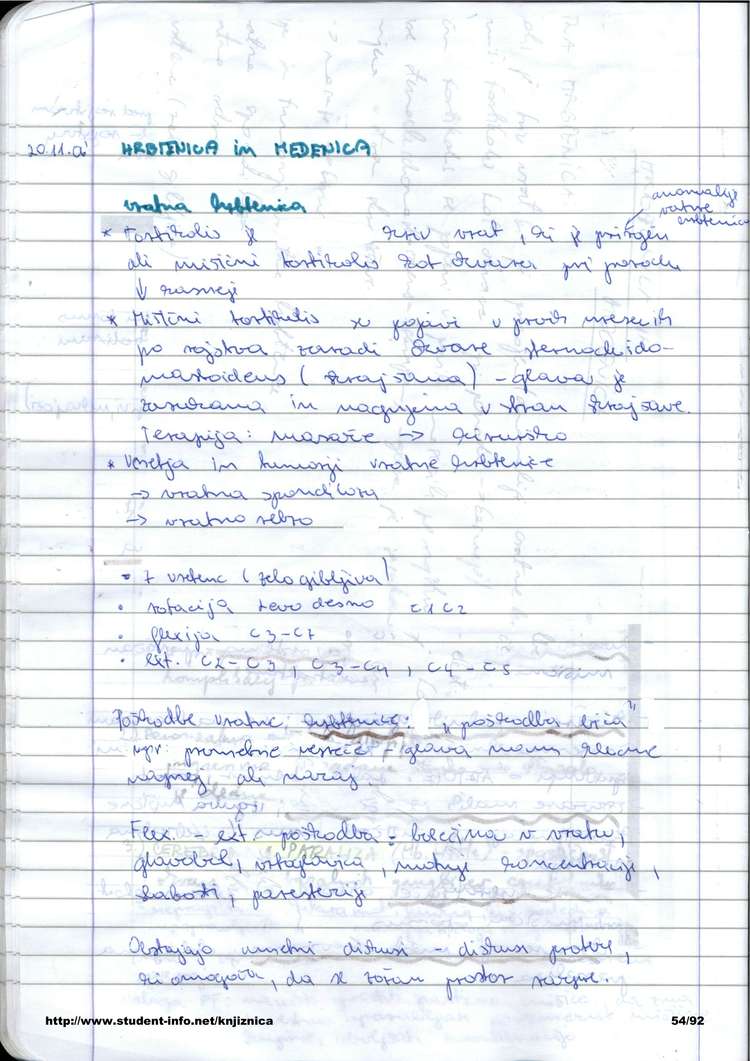 20.11.
HRBTENICA in MEDENICA
vratna hrbtenica
anomalije
vratne
hrbtenice
* Tortikolis je kriv vrat, ki je prirojen
ali mišični tortikolis kot okvara pri porodu
↓ kasneje
* Mišični tortikolis se pojavi v prvih mesecih
po rojstvu zaradi okvare sternocleido-
mastoideus (skrajšana) - glava je
in nagnjena v stran skrajšave.
Terapija: masaže → kirurško
* Vnetja in tumorji vratne hrbtenice
→ vratna spondiloza
→ vratno rebro
- 7 vretenc (zelo gibljiva)
• rotacija levo desno C1 C2
• flexija C3-C7
• ext. C2-C3, C3-C4, C4-C5
Poškodbe vratne hrbtenice: "poškodba biča"
npr. prometne nesreče - glava mom.
naprej ali nazaj.
Flex - ext poškodba - bolečina v vratu,
glavobol, vrtoglavica, motnje koncentracije,
slabosti, parestezije
Obstajajo umetni diski - diskus proteze,
ki omogoča, da se ta prostor
http://www.student-info.net/knjiznica
54/92